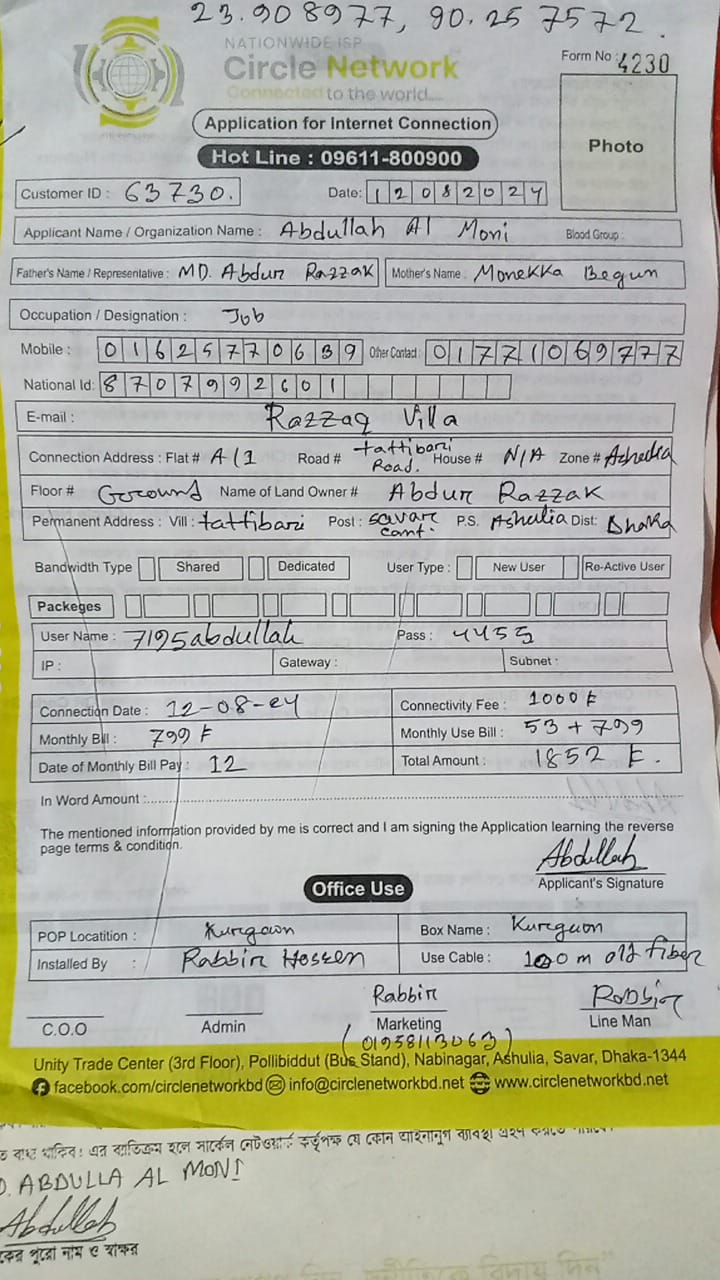 23.908977, 90.257572.
NATIONWIDE ISP
Circle Network
Connected to the world....
Form No : 4230
Application for Internet Connection
Photo
Hot Line : 09611-800900
Customer ID : 63730.
Date: 12082024
Applicant Name / Organization Name : Abdullah Al Moni Blood Group :
Father's Name / Representative : MD. Abdur Razzak Mother's Name : Monekka Begun
Occupation / Designation : Job
Mobile : 01625770639 Other Contact : 01771069777
National Id: 8707992601
E-mail : Razzaq Villa
Connection Address : Flat # A/1 Road # tattibari Road. House # N/A Zone # Ashulia
Floor # Ground Name of Land Owner # Abdur Razzak
Permanent Address : Vill : tattibari Post : savar cant. P.S. Ashulia Dist: Dhaka
Bandwidth Type Shared Dedicated User Type : New User Re-Active User
Packeges
User Name : 7195abdullah Pass : 4455
IP : Gateway : Subnet :
Connection Date : 12-08-24 Connectivity Fee : 1000 ৳
Monthly Bill : 799 ৳ Monthly Use Bill : 53 + 799
Date of Monthly Bill Pay : 12 Total Amount : 1852 ৳.
In Word Amount :
The mentioned information provided by me is correct and I am signing the Application learning the reverse
page terms & condition.
Abdullah
Applicant's Signature
Office Use
POP Locatition : Kurgaon Box Name : Kurgaon
Installed By : Rabbir Hossen Use Cable : 100 m old fiber
Rabbir Rabbir
C.O.O Admin Marketing Line Man
(01958113063)
Unity Trade Center (3rd Floor), Pollibiddut (Bus Stand), Nabinagar, Ashulia, Savar, Dhaka-1344
facebook.com/circlenetworkbd info@circlenetworkbd.net www.circlenetworkbd.net
বাধ্য থাকিব। এর ব্যতিক্রম হলে সার্কেল নেটওয়ার্ক কর্তৃপক্ষ যে কোন আইনানুগ ব্যবস্থা গ্রহণ করতে
ABDULLA AL MONI
Abdullah
পুরো নাম ও স্বাক্ষর